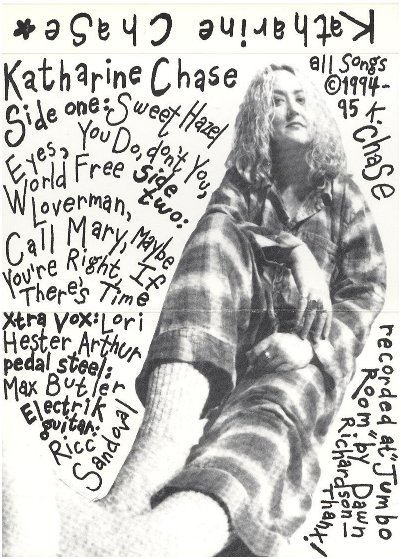 Katharine Chase*
Katharine Chase
Side one: Sweet Hazel
Eyes, You Do, don't You,
World Free Side
two:
W Loverman,
Call Mary, Maybe
You're Right, If
There's Time
xtra vox: Lori
Hester Arthur
pedal steel:
Max Butler
Electrik
guitar:
Ricc
Sandoval
all Songs
©1994-
95 K.
Chase
recorded at "Jumbo
Room" by Dawn
Richardson—
Thanx!